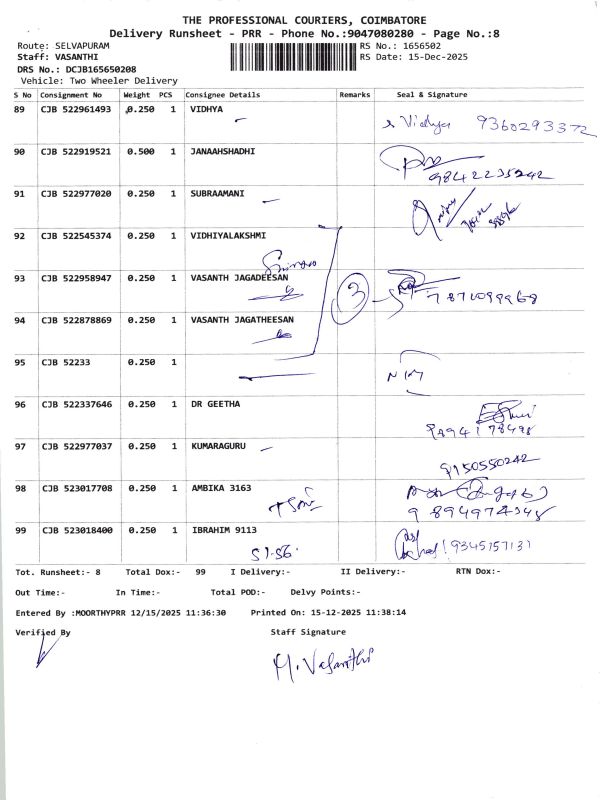 THE PROFESSIONAL COURIERS, COIMBATORE
Delivery Runsheet - PRR - Phone No.:9047080280 - Page No.:8
Route: SELVAPURAM RS No.: 1656502
Staff: VASANTHI RS Date: 15-Dec-2025
DRS No.: DCJB165650208
Vehicle: Two Wheeler Delivery
S No Consignment No Weight PCS Consignee Details Remarks Seal & Signature
89 CJB 522961493 0.250 1 VIDHYA
Vidhya 9360293372
90 CJB 522919521 0.500 1 JANAAHSHADHI
9842235242
91 CJB 522977020 0.250 1 SUBRAAMANI
92 CJB 522545374 0.250 1 VIDHIYALAKSHMI
93 CJB 522958947 0.250 1 VASANTH JAGADEESAN
3 7871099968
94 CJB 522878869 0.250 1 VASANTH JAGATHEESAN
95 CJB 52233 0.250 1
96 CJB 522337646 0.250 1 DR GEETHA
97 CJB 522977037 0.250 1 KUMARAGURU
9150550242
98 CJB 523017708 0.250 1 AMBIKA 3163
99 CJB 523018400 0.250 1 IBRAHIM 9113
9345157131
Tot. Runsheet:- 8 Total Dox:- 99 I Delivery:- II Delivery:- RTN Dox:-
Out Time:- In Time:- Total POD:- Delvy Points:-
Entered By :MOORTHYPRR 12/15/2025 11:36:30 Printed On: 15-12-2025 11:38:14
Verified By Staff Signature
M. Vasanthi